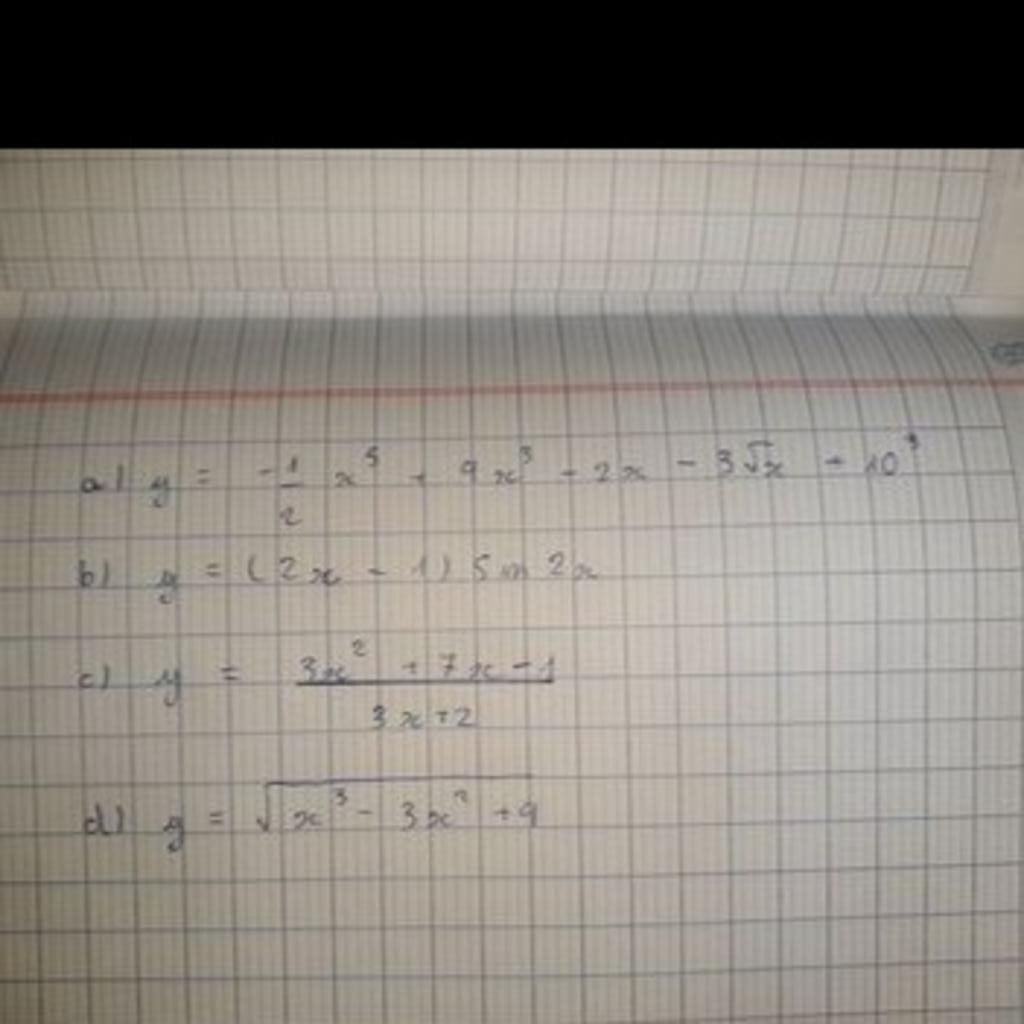 a) y = -1/2 x⁵ + 9x³ + 2x - 3√x + 10³
b) y = (2x - 1) Sin 2x
c) y = (3x² + 7x - 1)/(3x + 2)
d) y = √(x³ - 3x² + 9)